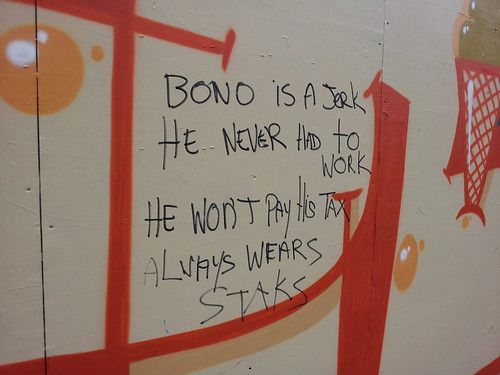 BONO iS A JERK
HE NEVER HAD to
WORK
HE WON'T PAY HiS TAX
ALWAYS WEARS
STAKS